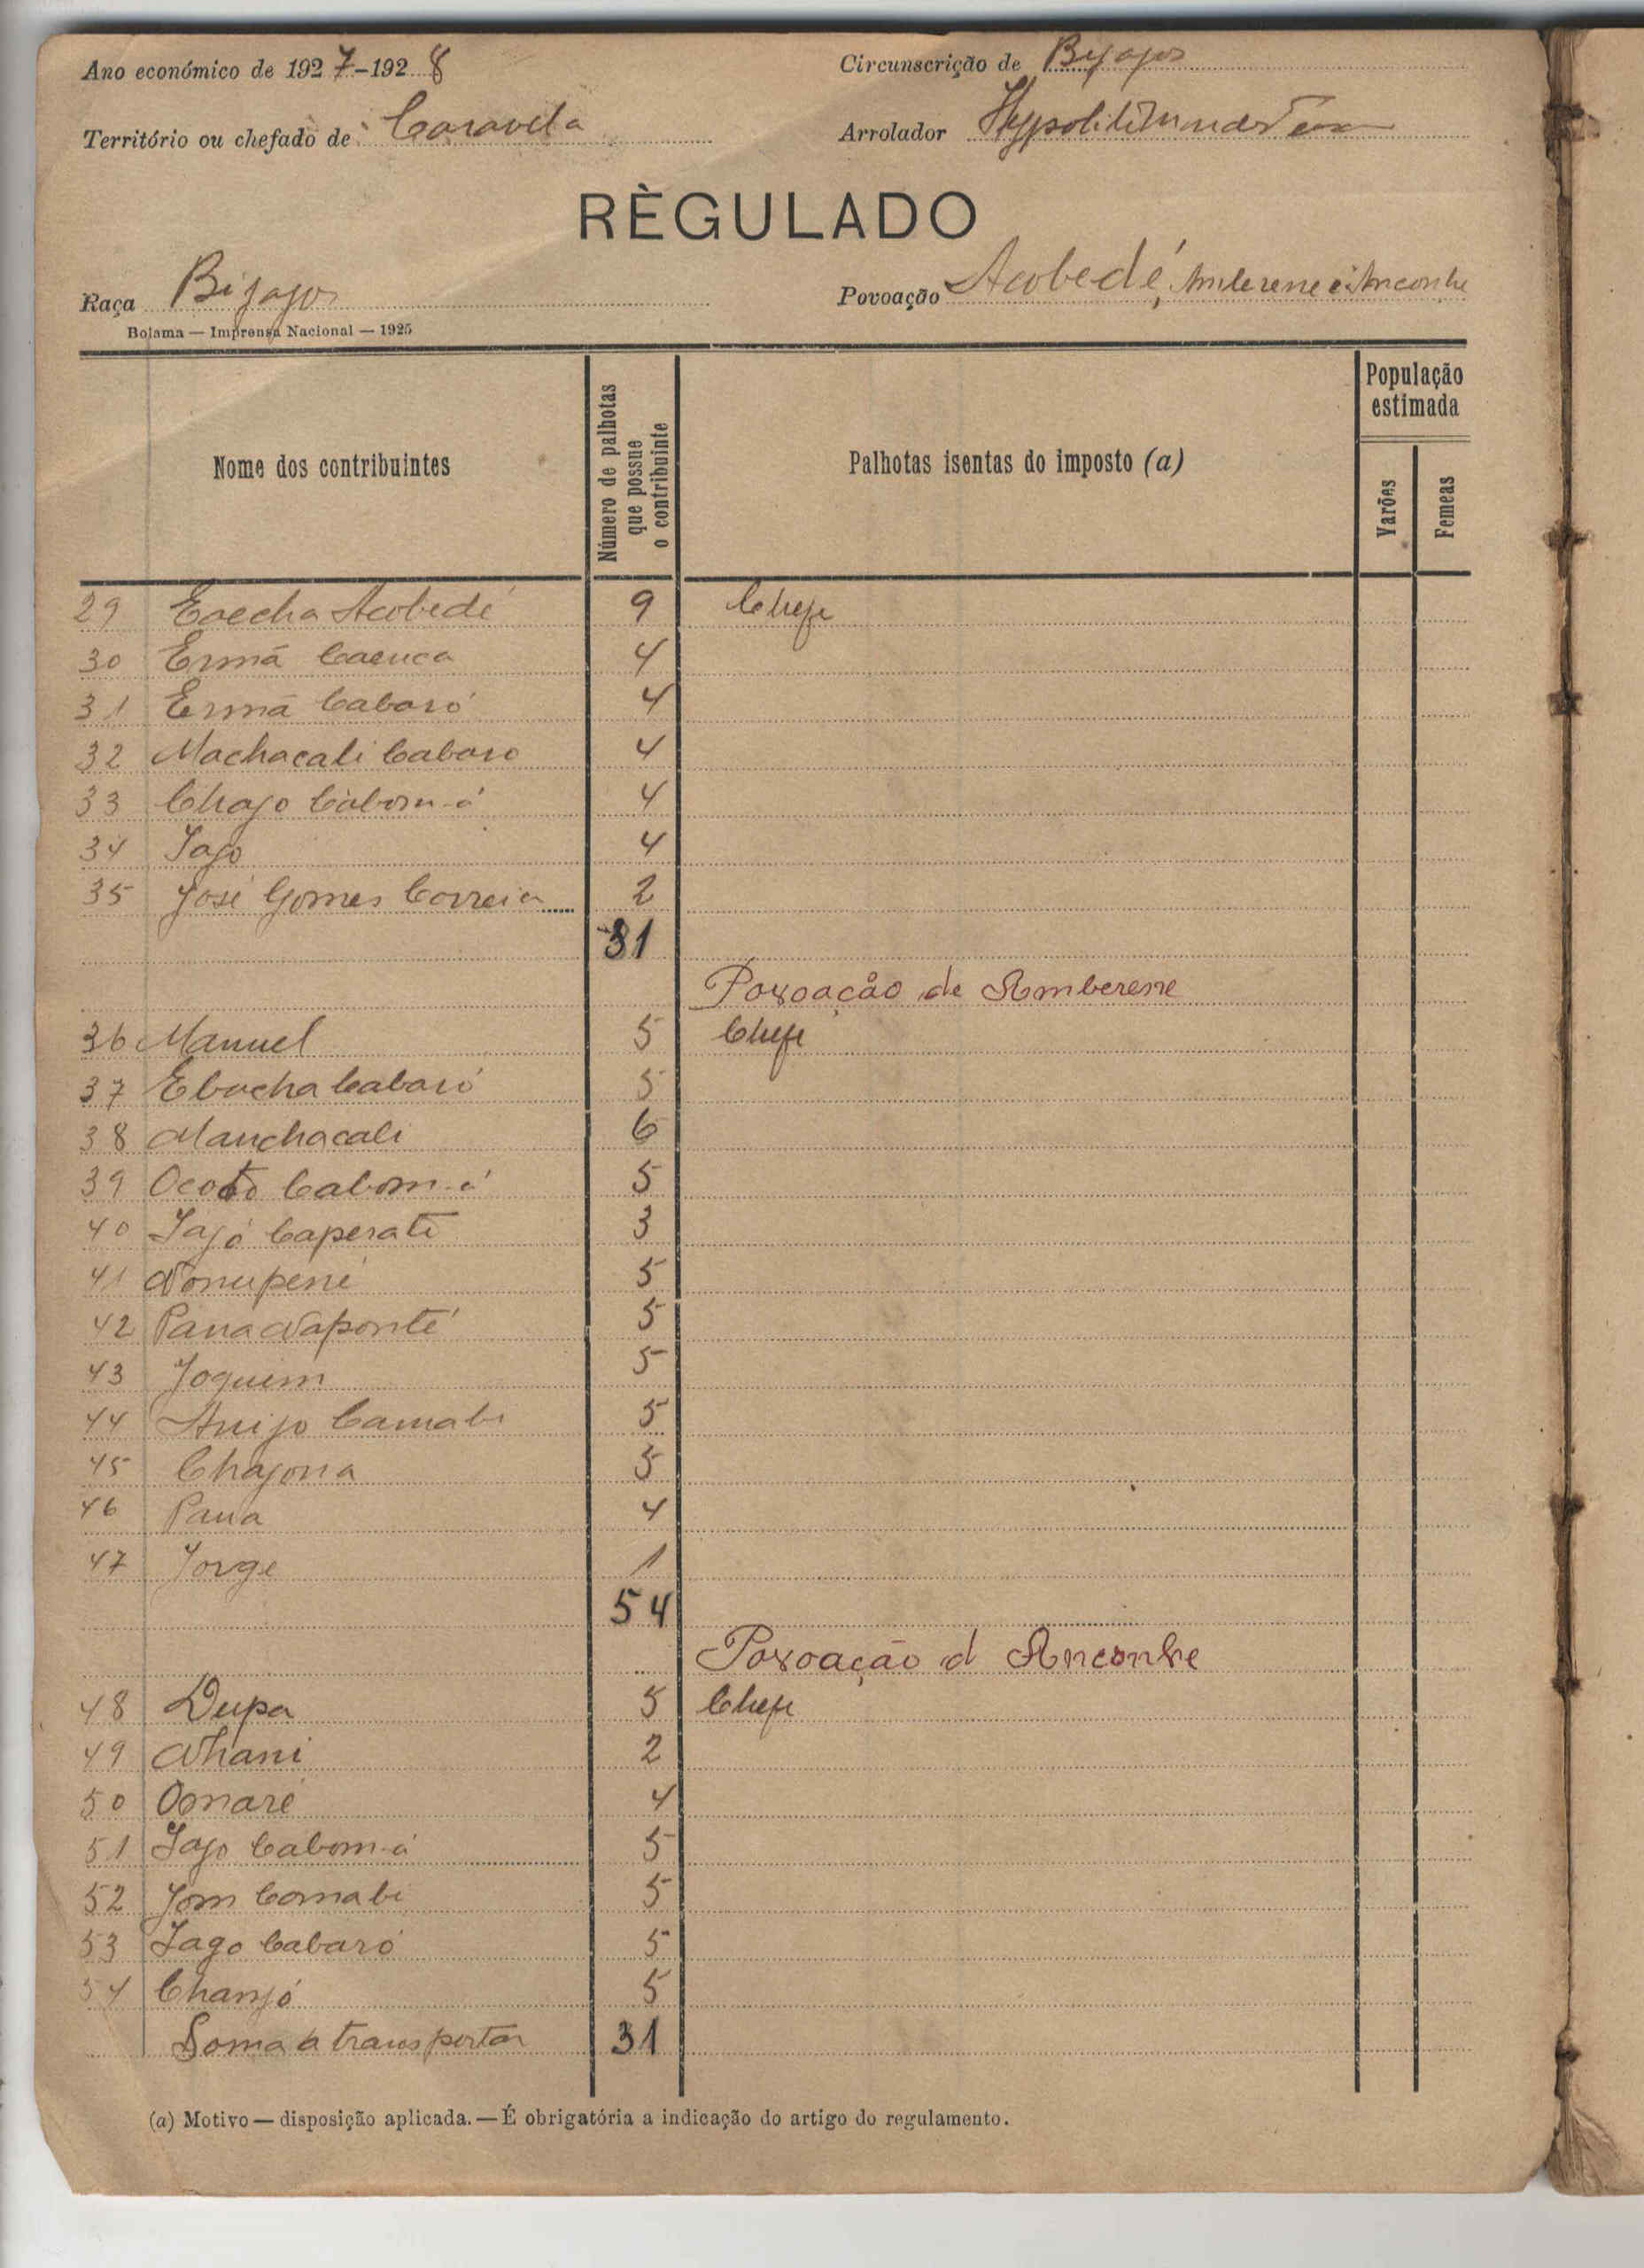 Ano económico de 1927-1928 Circunscrição de Byagos
Território ou chefado de Caravela Arrolador
RÈGULADO
Raça Bijagos Povoação Acobedé, e Anconhe
Bolama — Imprensa Nacional — 1925
Nome dos contribuintes
Número de palhotas que possue o contribuinte
Palhotas isentas do imposto (a)
População estimada
Varões
Femeas
29 Acobedé 9 Chefe
30 Ermã Caenca 4
31 Ermã Cabaró 4
32 Machacali Cabaro 4
33 Chajo Cabom-á 4
34 Jajo 4
35 José Gomes Correia 2
31
Povoação de Amberene
36 Manuel 5 Chefe
37 Ebocha Cabaró 5
38 Manchacali 6
39 Ococto Cabom-á 5
40 Jajó Caperati 3
41 Nonupené 5
42 Pana Naponté 5
43 Joquim 5
44 Anijo Camabi 5
45 Chajona 5
46 Pana 4
47 Jorge 1
54
Povoação d Anconhe
48 Dupa 5 Chefe
49 Nhani 2
50 Omaré 4
51 Jajo Cabom-á 5
52 Jom Comabi 5
53 Jago Cabaró 5
54 Chanjó 5
Soma a transportar 31
(a) Motivo — disposição aplicada. — É obrigatória a indicação do artigo do regulamento.